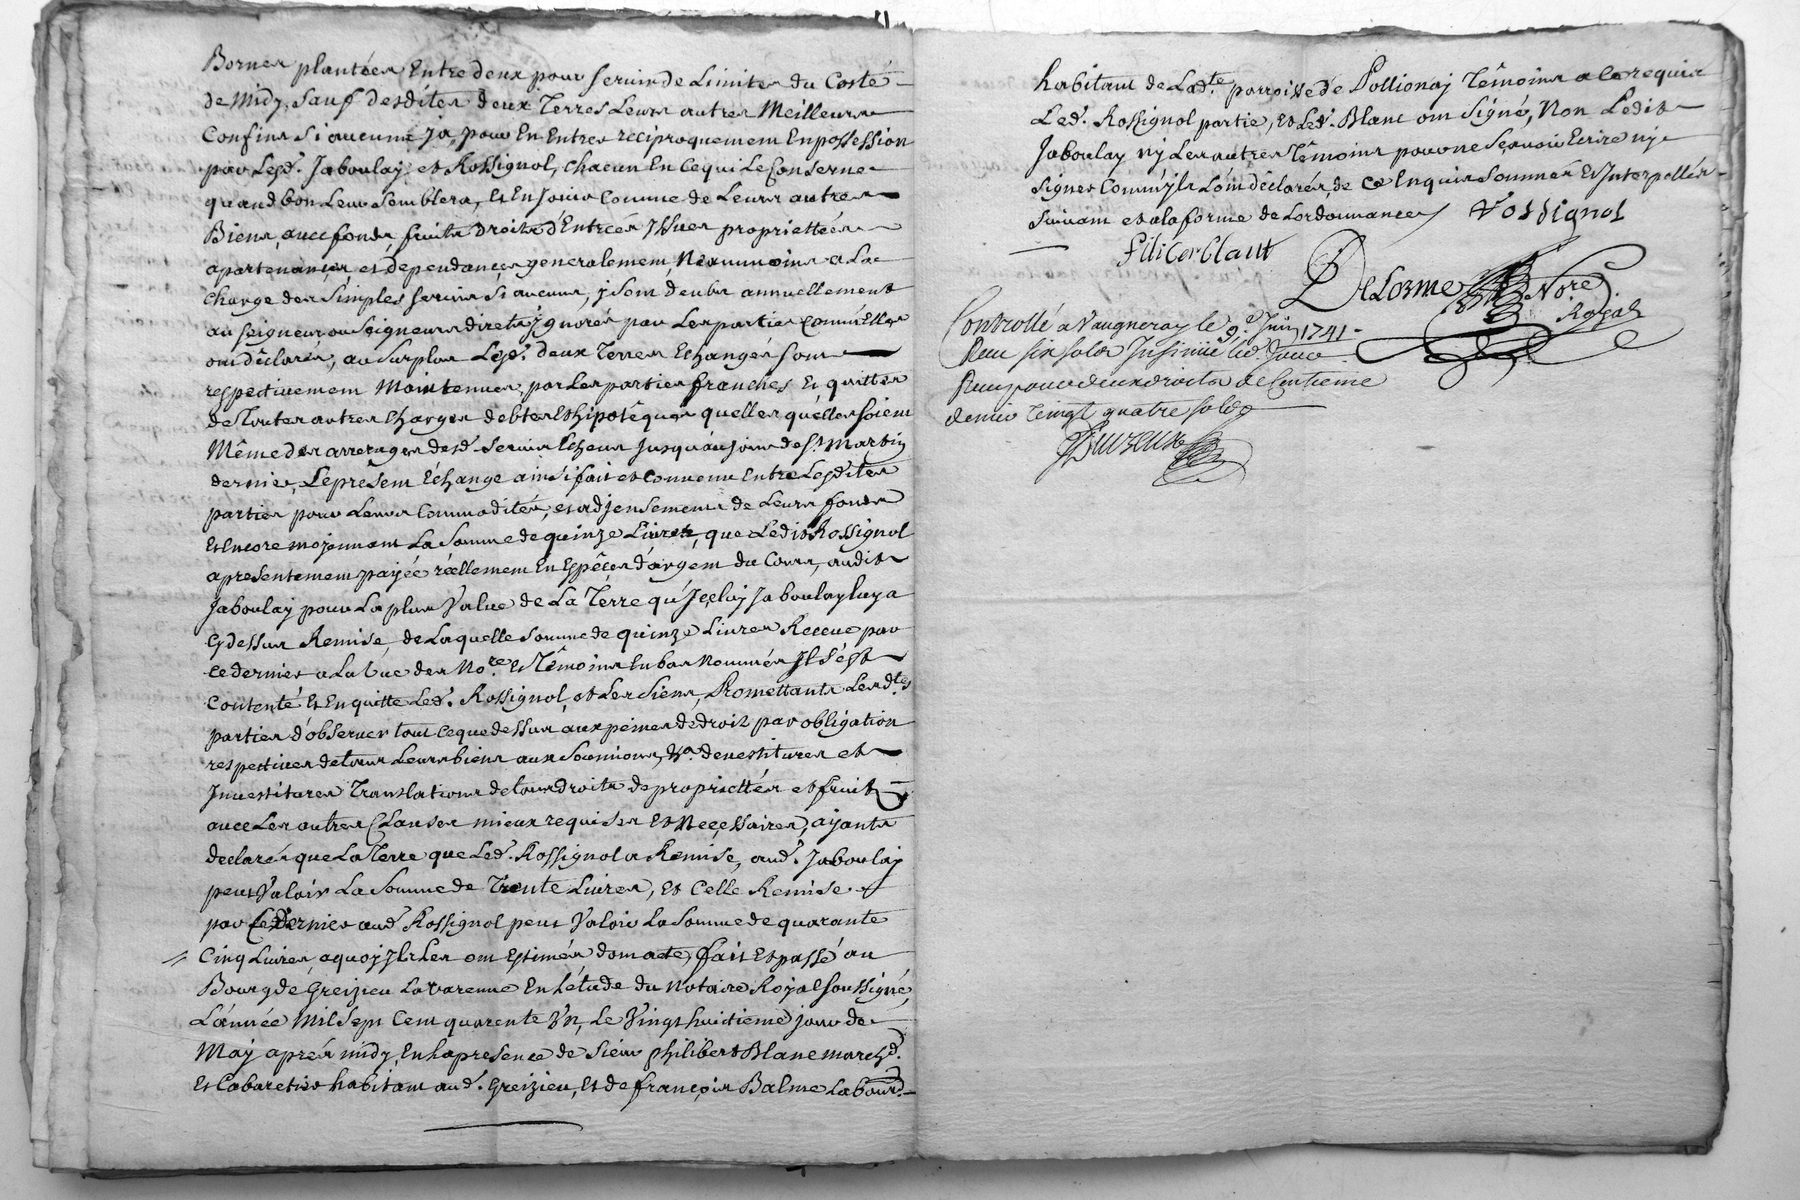 Bornes plantées Entre deux pour servir de Limites du Costé
de Midy, sauf desdites deux Terres Leurs autres Meilleurs
Confins si aucuns ja, pour En Entrer reciproquement En possession
par Lesd. Jaboulay et Rossignol, chacun En Ce qui Le Conserne
quand bon Leur Semblera, Et En Jouir Comme de Leurs autres
Biens, avec fonds, fruits Droits d'Entrées Issues propriettées
apartenances et dependances generalement, Neanmoins a La
charge des Simples servis si aucuns, y sont deubs annuellement
au seigneur ou seigneurs directs ignorés par Les parties Comm'Elles
ont déclarés, au Surplus Lesd. deux Terres Echangés sont
respectivement Maintenues, par Les parties franches Et quittes
de Toutes autres charges debtes Et hipotêques quelles qu'elles soient
Même des arrerages desd. servis Echeus Jusqu'au jour de St. Martin
dernier, Le present Echange ainsi fait et Convenu Entre Lesdites
parties pour Leurs Commodités, et adjensements de Leurs fonds
Et Encore moyennant La Somme de quinze Livres, que Ledit Rossignol
a presentement payée réellement En Espêces d'argent du Cours, audit
Jaboulay pour La plus Value de La Terre qu'Jçeluy Jaboulay luy a
Cy dessus Remise, de Laquelle Somme de quinze Livres Receue par
Ce dernier a La Vue des Nore. Et Têmoins En bas Nommés Il s'est
Contenté Et En quitte Led. Rossignol, et Les Siens, Promettants Lesdtes
parties d'observer tout Ce que dessus aux peines de droit par obligation
respective de tous Leurs biens aux Soumions, &a. devestitures et
Investitures Translations de tous droits de propriettés et fruits
avec Les autres Clauses mieux requises Et Neçessaires, ayants
declarés que La Terre que Led. Rossignol a Remise, aud. Jaboulay
peut Valoir La Somme de Trente Livres, Et Celle Remise
par Ce Dernier aud. Rossignol peut Valoir La Somme de quarante
Cinq Livres, a quoy Ils Les ont Estimés dont acte, fait Et passé au
Bourg de Greizieu La Varenne En L'étude du Notaire Royal soussigné,
L'année Mil Sept Cent quarente Un, Le Vingt huitieme jour de
May aprés midy, En la presence de Sieur philibert Blanc marchd.
Et Cabaretier habitant aud. Greizieu, Et de françois Balme Labourd.
habitant de Ladte. parroisse de Pollionay Têmoins a Ce requis
Led. Rossignol partie, Et Led. Blanc ont Signé, Non Ledit
Jaboulay ny Les autres Têmoins pour ne Sçavoir Ecrire ny
Signer Comm'ils L'ont déclarés de Ce Enquis Sommés Et Interpellés
Suivant et a la forme de L'ordonnance Rossignol
filiber blant
DeLorme Nore
Royal
Controllé a Vaugneray le 9e. Juin 1741.
Receu six sols
Receu pour deux droits de Centieme
denier vingt quatre sols